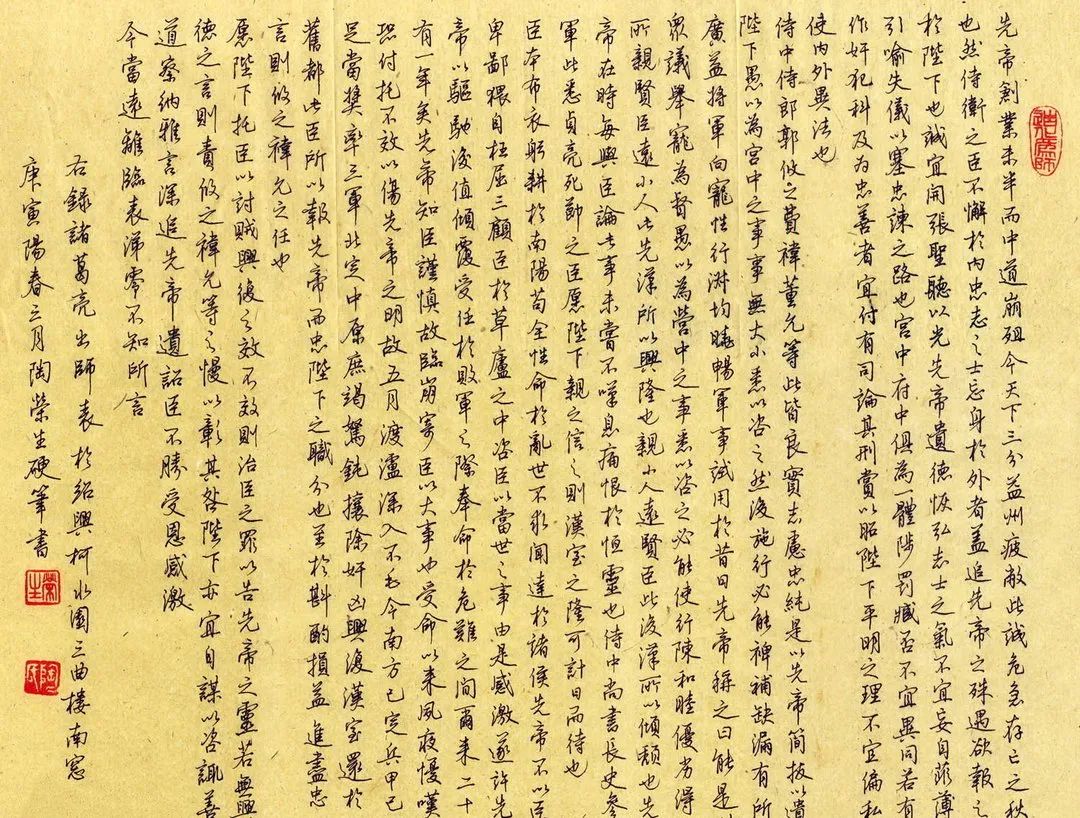 先帝創業未半而中道崩殂今天下三分益州疲敝此誠危急存亡之秋
也然侍衛之臣不懈於內忠志之士忘身於外者蓋追先帝之殊遇欲報之
於陛下也誠宜開張聖聽以光先帝遺德恢弘志士之氣不宜妄自菲薄
引喻失儀以塞忠諫之路也宮中府中俱為一體陟罰臧否不宜異同若有
作奸犯科及為忠善者宜付有司論其刑賞以昭陛下平明之理不宜偏私
使內外異法也
侍中侍郎郭攸之費禕董允等此皆良實志慮忠純是以先帝簡拔以遺
陛下愚以為宮中之事事無大小悉以咨之然後施行必能裨補缺漏有所
廣益將軍向寵性行淑均曉暢軍事試用於昔日先帝稱之曰能是
眾議舉寵為督愚以為營中之事悉以咨之必能使行陳和睦優劣得
所親賢臣遠小人此先漢所以興隆也親小人遠賢臣此後漢所以傾頹也先
帝在時每與臣論此事未嘗不嘆息痛恨於恒靈也侍中尚書長史參
軍此悉貞亮死節之臣愿陛下親之信之則漢室之隆可計日而待也
臣本布衣躬耕於南陽苟全性命於亂世不求聞達於諸侯先帝不以臣
卑鄙猥自枉屈三顧臣於草廬之中咨臣以當世之事由是感激遂許先
帝以驅馳後值傾覆受任於敗軍之際奉命於危難之間爾來二十
有一年矣先帝知臣謹慎故臨崩寄臣以大事也受命以來夙夜憂嘆
恐付托不效以傷先帝之明故五月渡瀘深入不毛今南方已定兵甲已
足當獎率三軍北定中原庶竭駑鈍攘除奸凶興復漢室還於
舊都此臣所以報先帝而忠陛下之職分也至於斟酌損益進盡忠
言則攸之禕允之任也
愿陛下托臣以討賊興復之效不效則治臣之罪以告先帝之靈若無興
德之言則責攸之禕允等之慢以彰其咎陛下亦宜自謀以咨諏善
道察納雅言深追先帝遺詔臣不勝受恩感激
今當遠離臨表涕零不知所言
右錄諸葛亮出師表於紹興柯水園三曲樓南窓
庚寅陽春三月陶榮生硬筆書